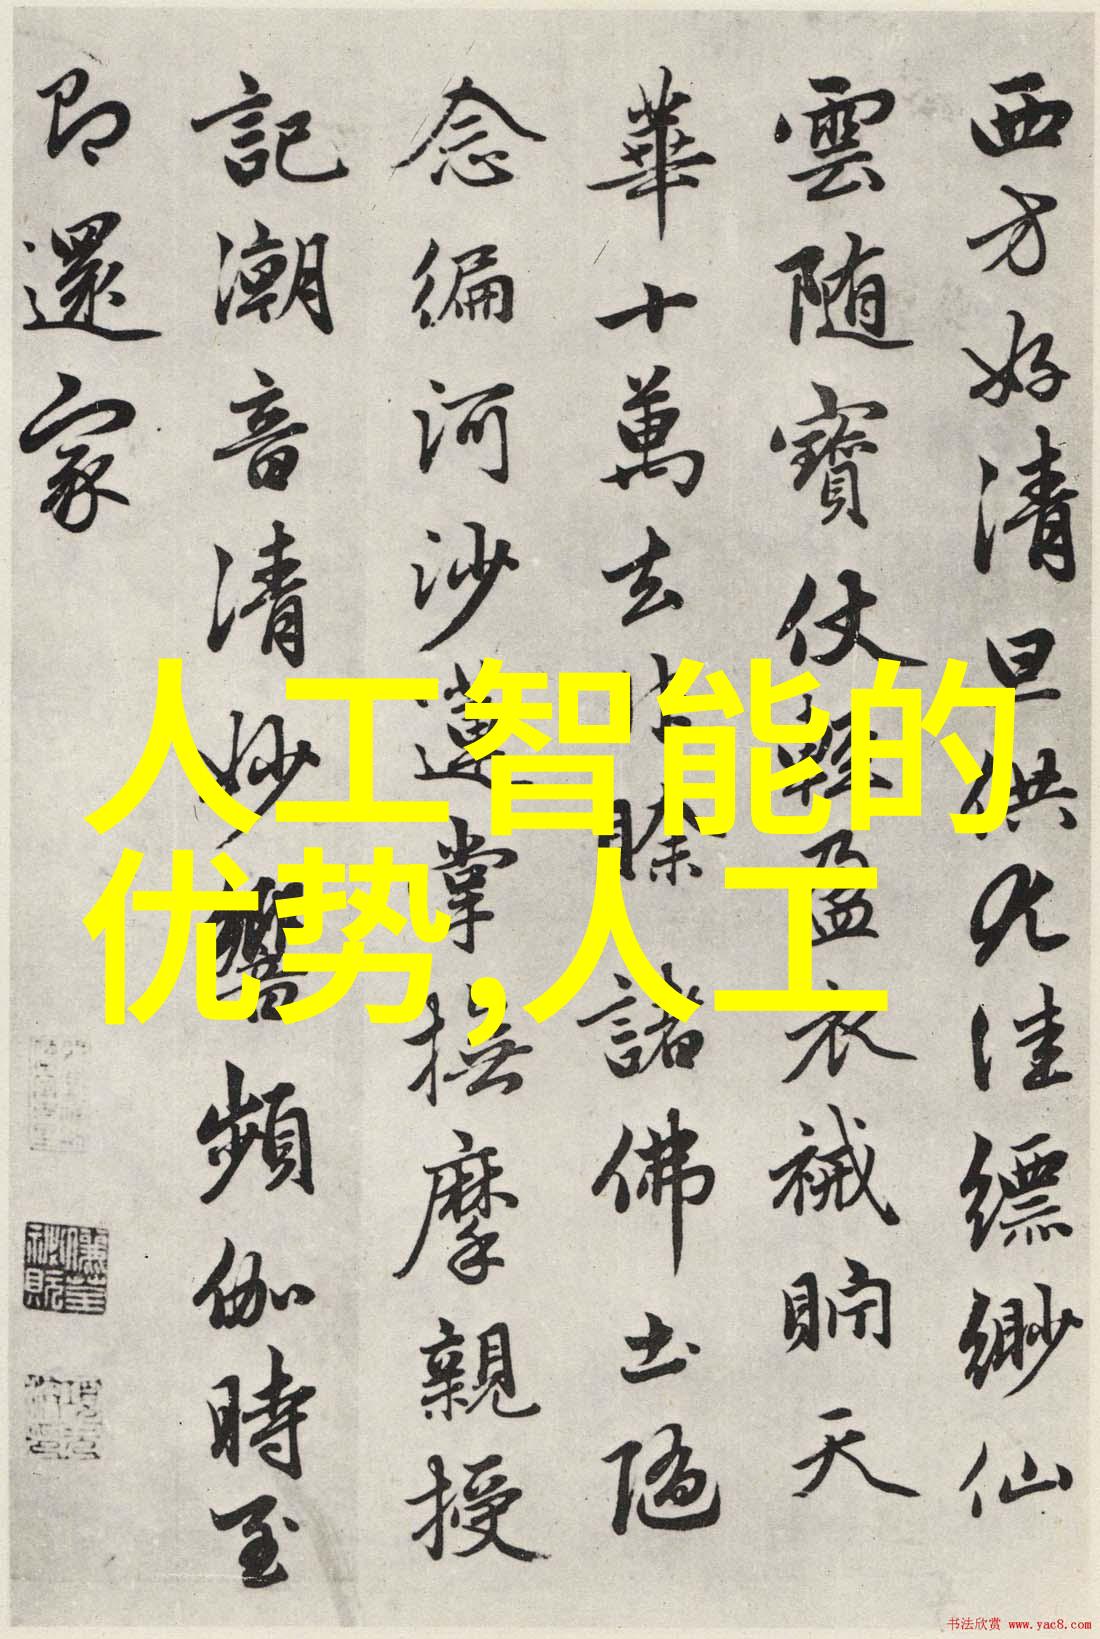 西方好清旦供九洼縹緲仙
雲随寶仗輕盈衣祴貯天
華十萬去法賖諸佛土隨
念編河沙蓮掌撫摩親授
記潮音清妙響頻伽時至
即還家
人工智能的
优势,人工
书法欣赏 www.yac8.com